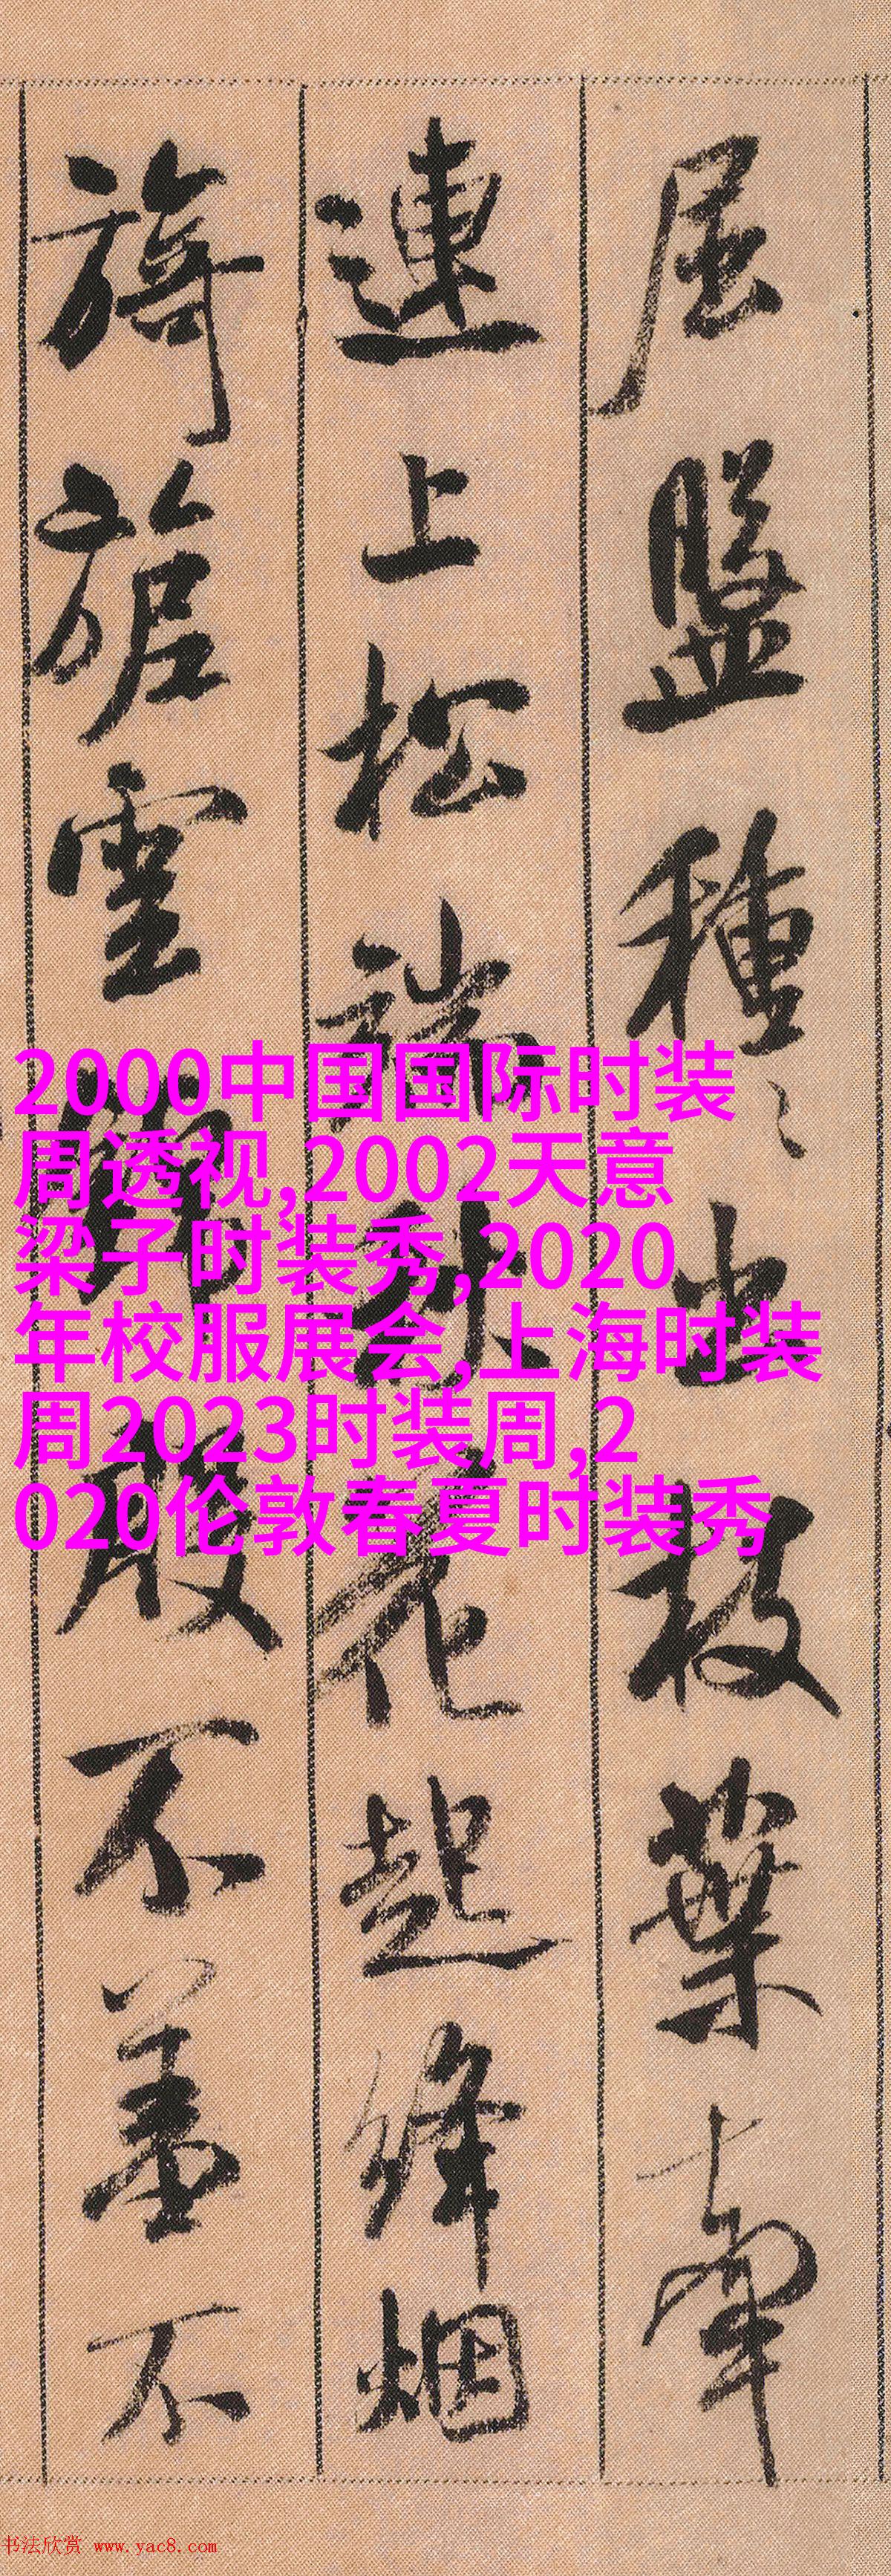 屈盤種〻出枝葉牽
連上松端秋花起絳烟
旖旎雲錦殷不羞不
2000中国国际时装
周透视,2002天意
梁子时装秀,2020
年校服展会,上海时装
周2023时装周,2
020伦敦春夏时装秀
书法欣赏 www.yac8.com